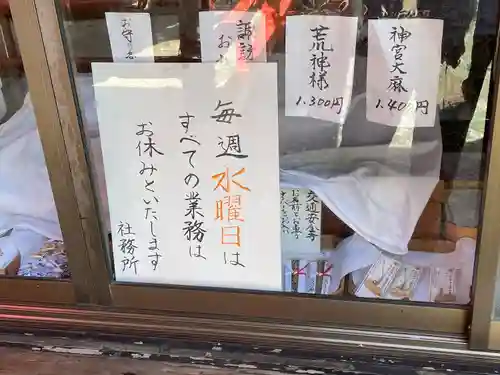 お守り
諏訪
お
荒神様
1.300円
神宮大麻
1.400円
毎週水曜日は
すべての業務は
お休みといたします
社務所
交通安全